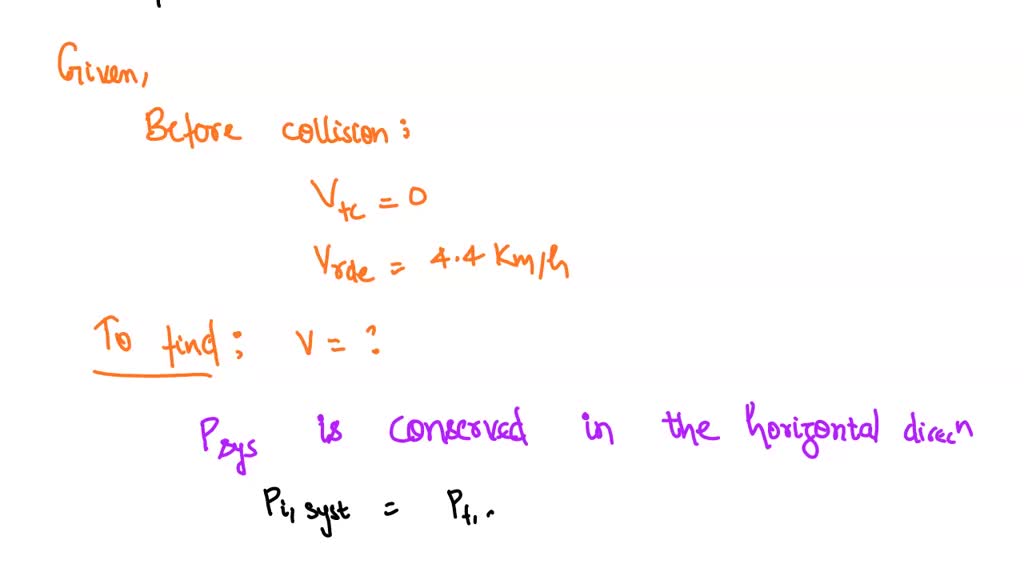 Given,
Before collision:
Vtc = 0
Vrde = 4.4 Km/h
To find: V = ?
Psys is conserved in the horizontal direcn
Pi, syst = Pf,